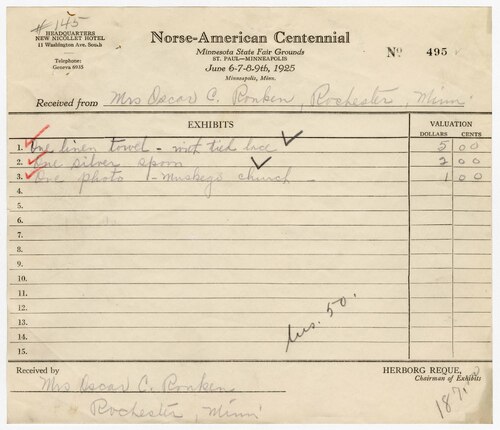 # 145
HEADQUARTERS
NEW NICOLLET HOTEL
11 Washington Ave. South
Telephone:
Geneva 6935
Norse-American Centennial
Minnesota State Fair Grounds
ST. PAUL—MINNEAPOLIS
June 6-7-8-9th, 1925
Minneapolis, Minn.
No 495
Received from Mrs Oscar C. Ronken, Rochester, Minn
EXHIBITS VALUATION
DOLLARS CENTS
1. One linen towel - with tied lace 5 00
2. One silver spoon 2 00
3. One photo - Muskego church 1 00
4.
5.
6.
7.
8.
9.
10.
11.
12.
13.
14.
15.
Ins. 50.
Received by HERBORG REQUE,
Chairman of Exhibits
Mrs Oscar C. Ronken
Rochester, Minn